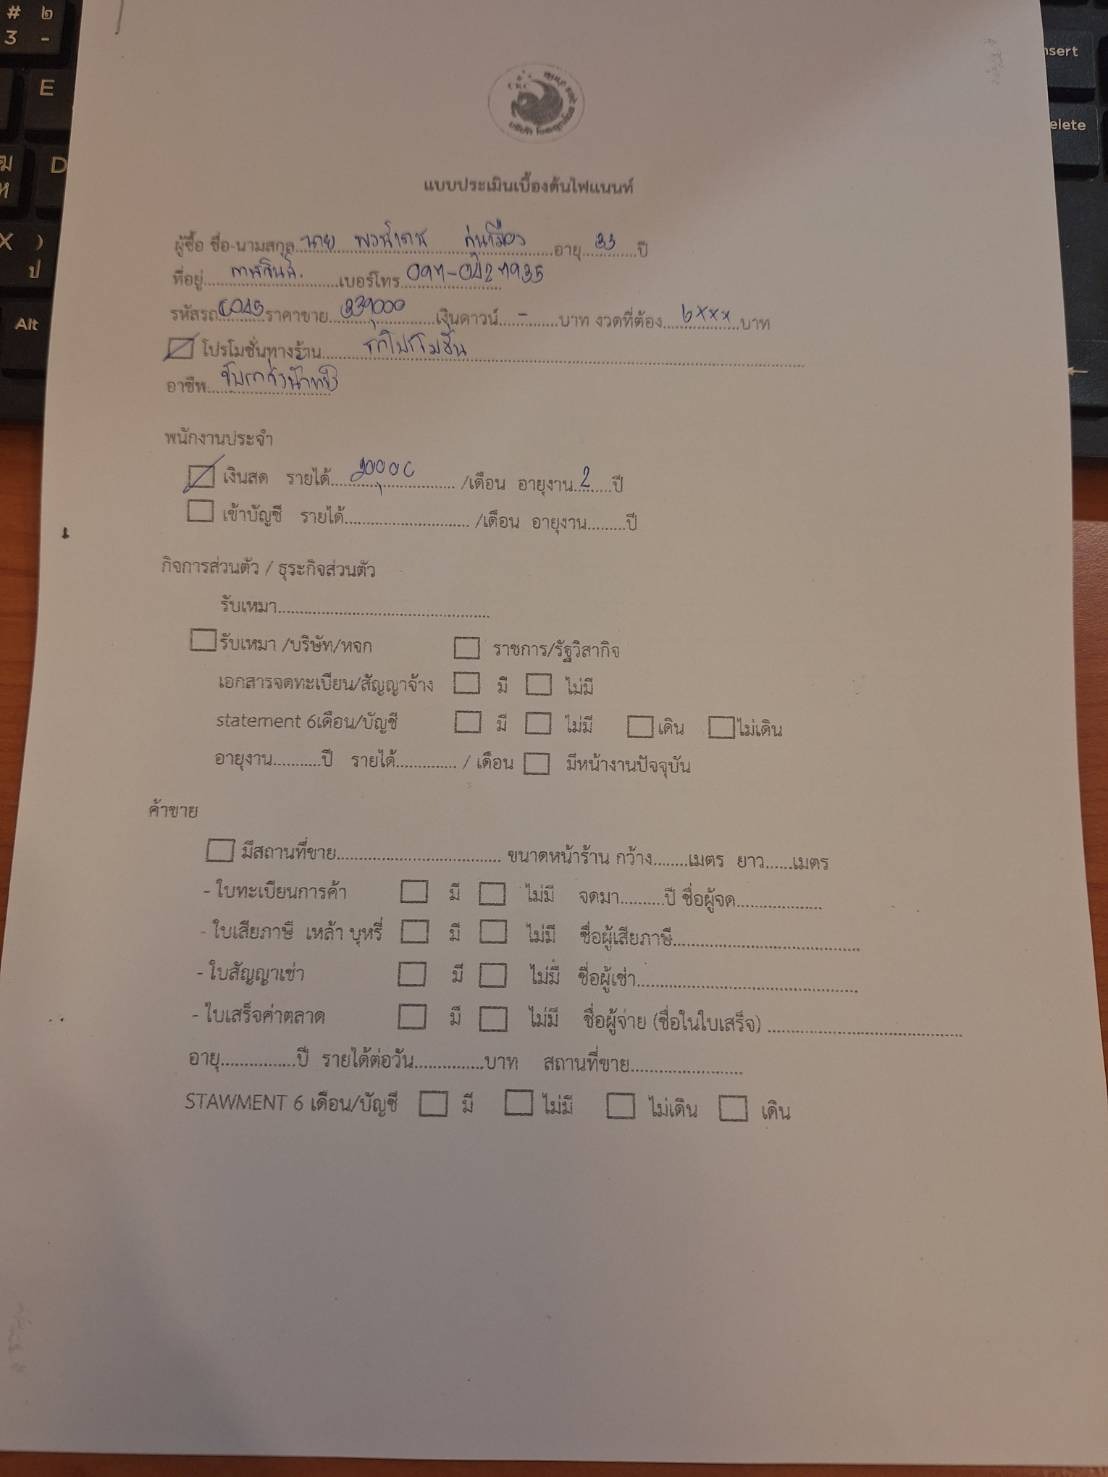 แบบประเมินเบื้องต้นไฟแนนท์
ผู้ซื้อ ชื่อ-นามสกุล นาย อายุ 33 ปี
ที่อยู่ กาฬสินธุ์. เบอร์โทร
รหัสรถ ราคาขาย 339,000 เงินดาวน์ - บาท งวดที่ต้อง 6xxx บาท
โปรโมชั่นทางร้าน รถโปรโมชั่น
อาชีพ
พนักงานประจำ
เงินสด รายได้ /เดือน อายุงาน 2 ปี
เข้าบัญชี รายได้ /เดือน อายุงาน ปี
กิจการส่วนตัว / ธุระกิจส่วนตัว
รับเหมา
รับเหมา /บริษัท/หจก ราชการ/รัฐวิสากิจ
เอกสารจดทะเบียน/สัญญาจ้าง มี ไม่มี
statement 6เดือน/บัญชี มี ไม่มี เดิน ไม่เดิน
อายุงาน ปี รายได้ / เดือน มีหน้างานปัจจุบัน
ค้าขาย
มีสถานที่ขาย ขนาดหน้าร้าน กว้าง เมตร ยาว เมตร
- ใบทะเบียนการค้า มี ไม่มี จดมา ปี ชื่อผู้จด
- ใบเสียภาษี เหล้า บุหรี่ มี ไม่มี ชื่อผู้เสียภาษี
- ใบสัญญาเช่า มี ไม่มี ชื่อผู้เช่า
- ใบเสร็จค่าตลาด มี ไม่มี ชื่อผู้จ่าย (ชื่อในใบเสร็จ)
อายุ ปี รายได้ต่อวัน บาท สถานที่ขาย
STAWMENT 6 เดือน/บัญชี มี ไม่มี ไม่เดิน เดิน